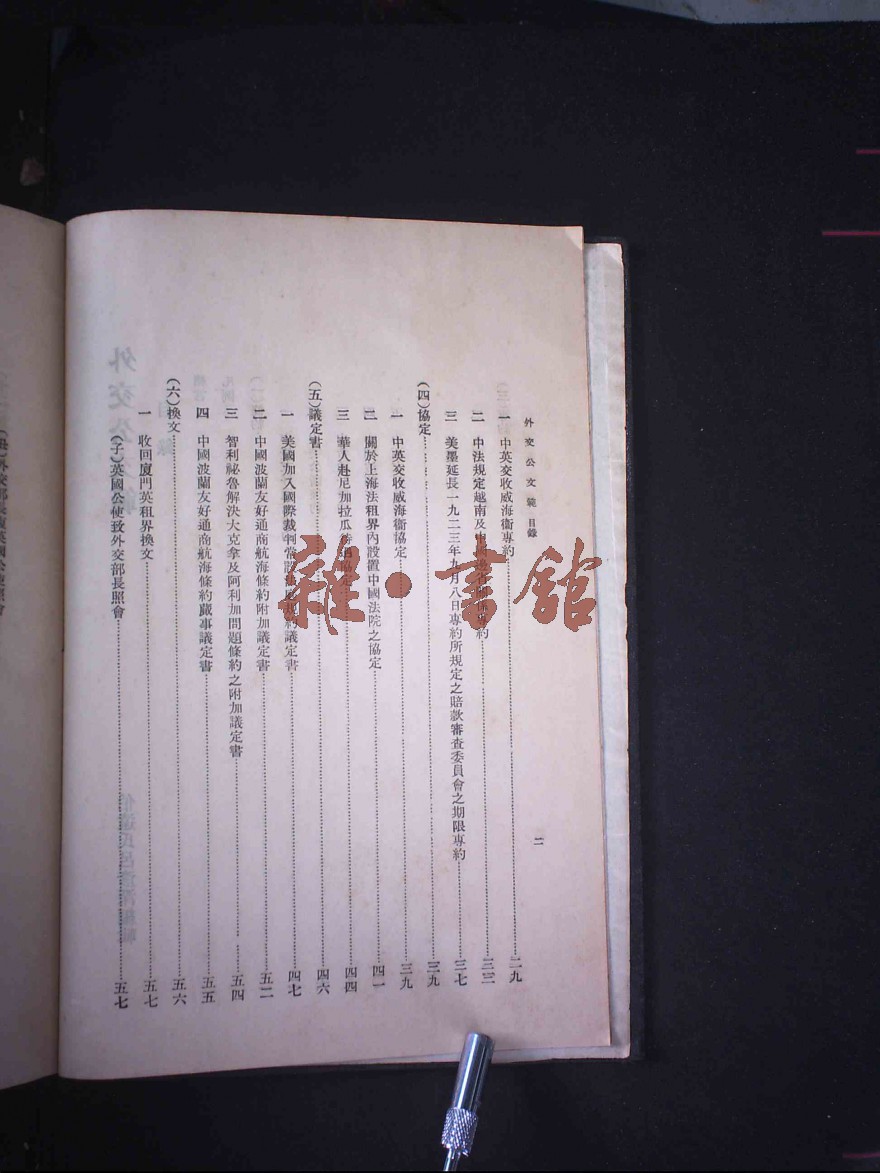 外交公文範 目錄
二
一 中英交收威海衞專約 二九
二 中法規定越南及中國邊省關係專約 三三
三 美墨延長一九二三年九月八日專約所規定之賠款審查委員會之期限專約 三七
(四)協定 三九
一 中英交收威海衞協定 三九
二 關於上海法租界內設置中國法院之協定 四一
三 華人赴尼加拉瓜 協定 四四
(五)議定書 四六
一 美國加入國際裁判常設法庭規約議定書 四七
二 中國波蘭友好通商航海條約附加議定書 五二
三 智利祕魯解決大克拿及阿利加問題條約之附加議定書 五四
四 中國波蘭友好通商航海條約蕆事議定書 五五
(六)換文 五六
一 收回廈門英租界換文 五七
(子)英國公使致外交部長照會 五七
雜·書館